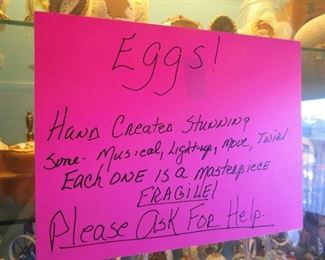 Eggs!
Hand Created Stunning
Some - Musical, Light-up, Move, Twirl
Each one is a masterpiece
FRAGILE!
Please Ask For Help.